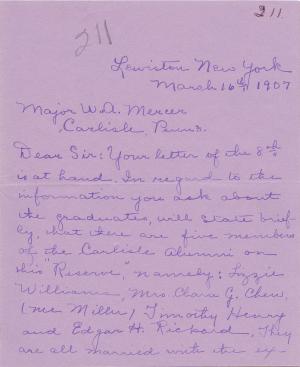 211.
211
Lewiston New York
March 16th, 1907
Major W.A. Mercer
Carlisle, Penna.
Dear Sir: Your letter of the 8th
is at hand. In regard to the
information you ask about
the graduates, will state brief-
ly, that there are five members
of the Carlisle Alumni on
this "Reserve," namely: Lizzie
Williams, Mrs. Clara G. Chew,
(me Miller) Timothy Henry
and Edgar H. Rickard. They
are all married with the ex-